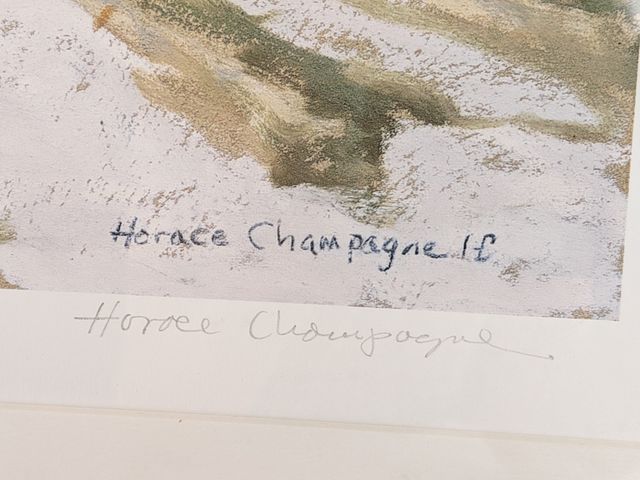 Horace Champagne If
Horace Champagne